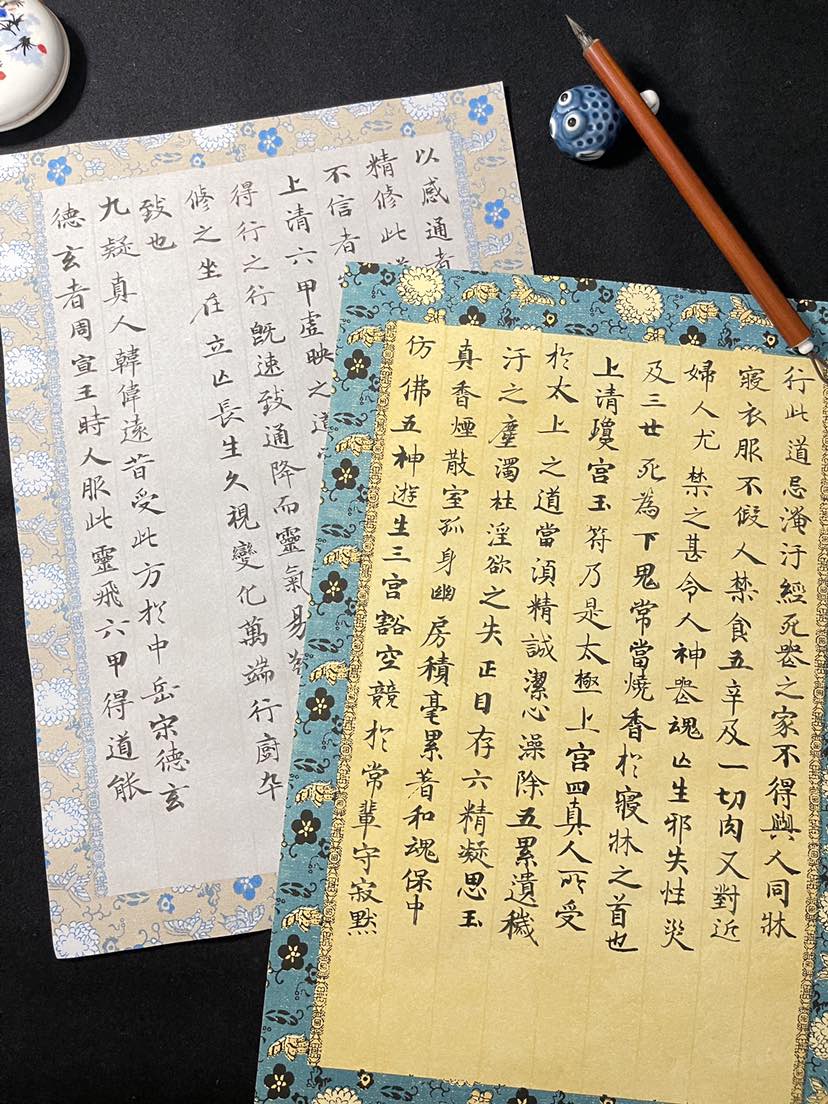 行此道忌淹汙經死喪之家不得與人同牀
寢衣服不假人禁食五辛及一切肉又對近
婦人尤禁之甚令人神喪魂亡生邪失性災
及三世死為下鬼常當燒香於寢牀之首也
上清瓊宮玉符乃是太極上宮四真人所受
於太上之道當須精誠潔心澡除五累遺穢
汙之塵濁杜淫欲之失正目存六精凝思玉
真香煙散室孤身幽房積毫累著和魂保中
仿佛五神遊生三宮豁空競於常輩守寂默
以感通者
精修此
不信者
上清六甲虛映之道
得行之行既速致通降而靈氣易
修之坐在立亡長生久視變化萬端行廚卒
致也
九疑真人韓偉遠昔受此方於中岳宋德玄
德玄者周宣王時人服此靈飛六甲得道能